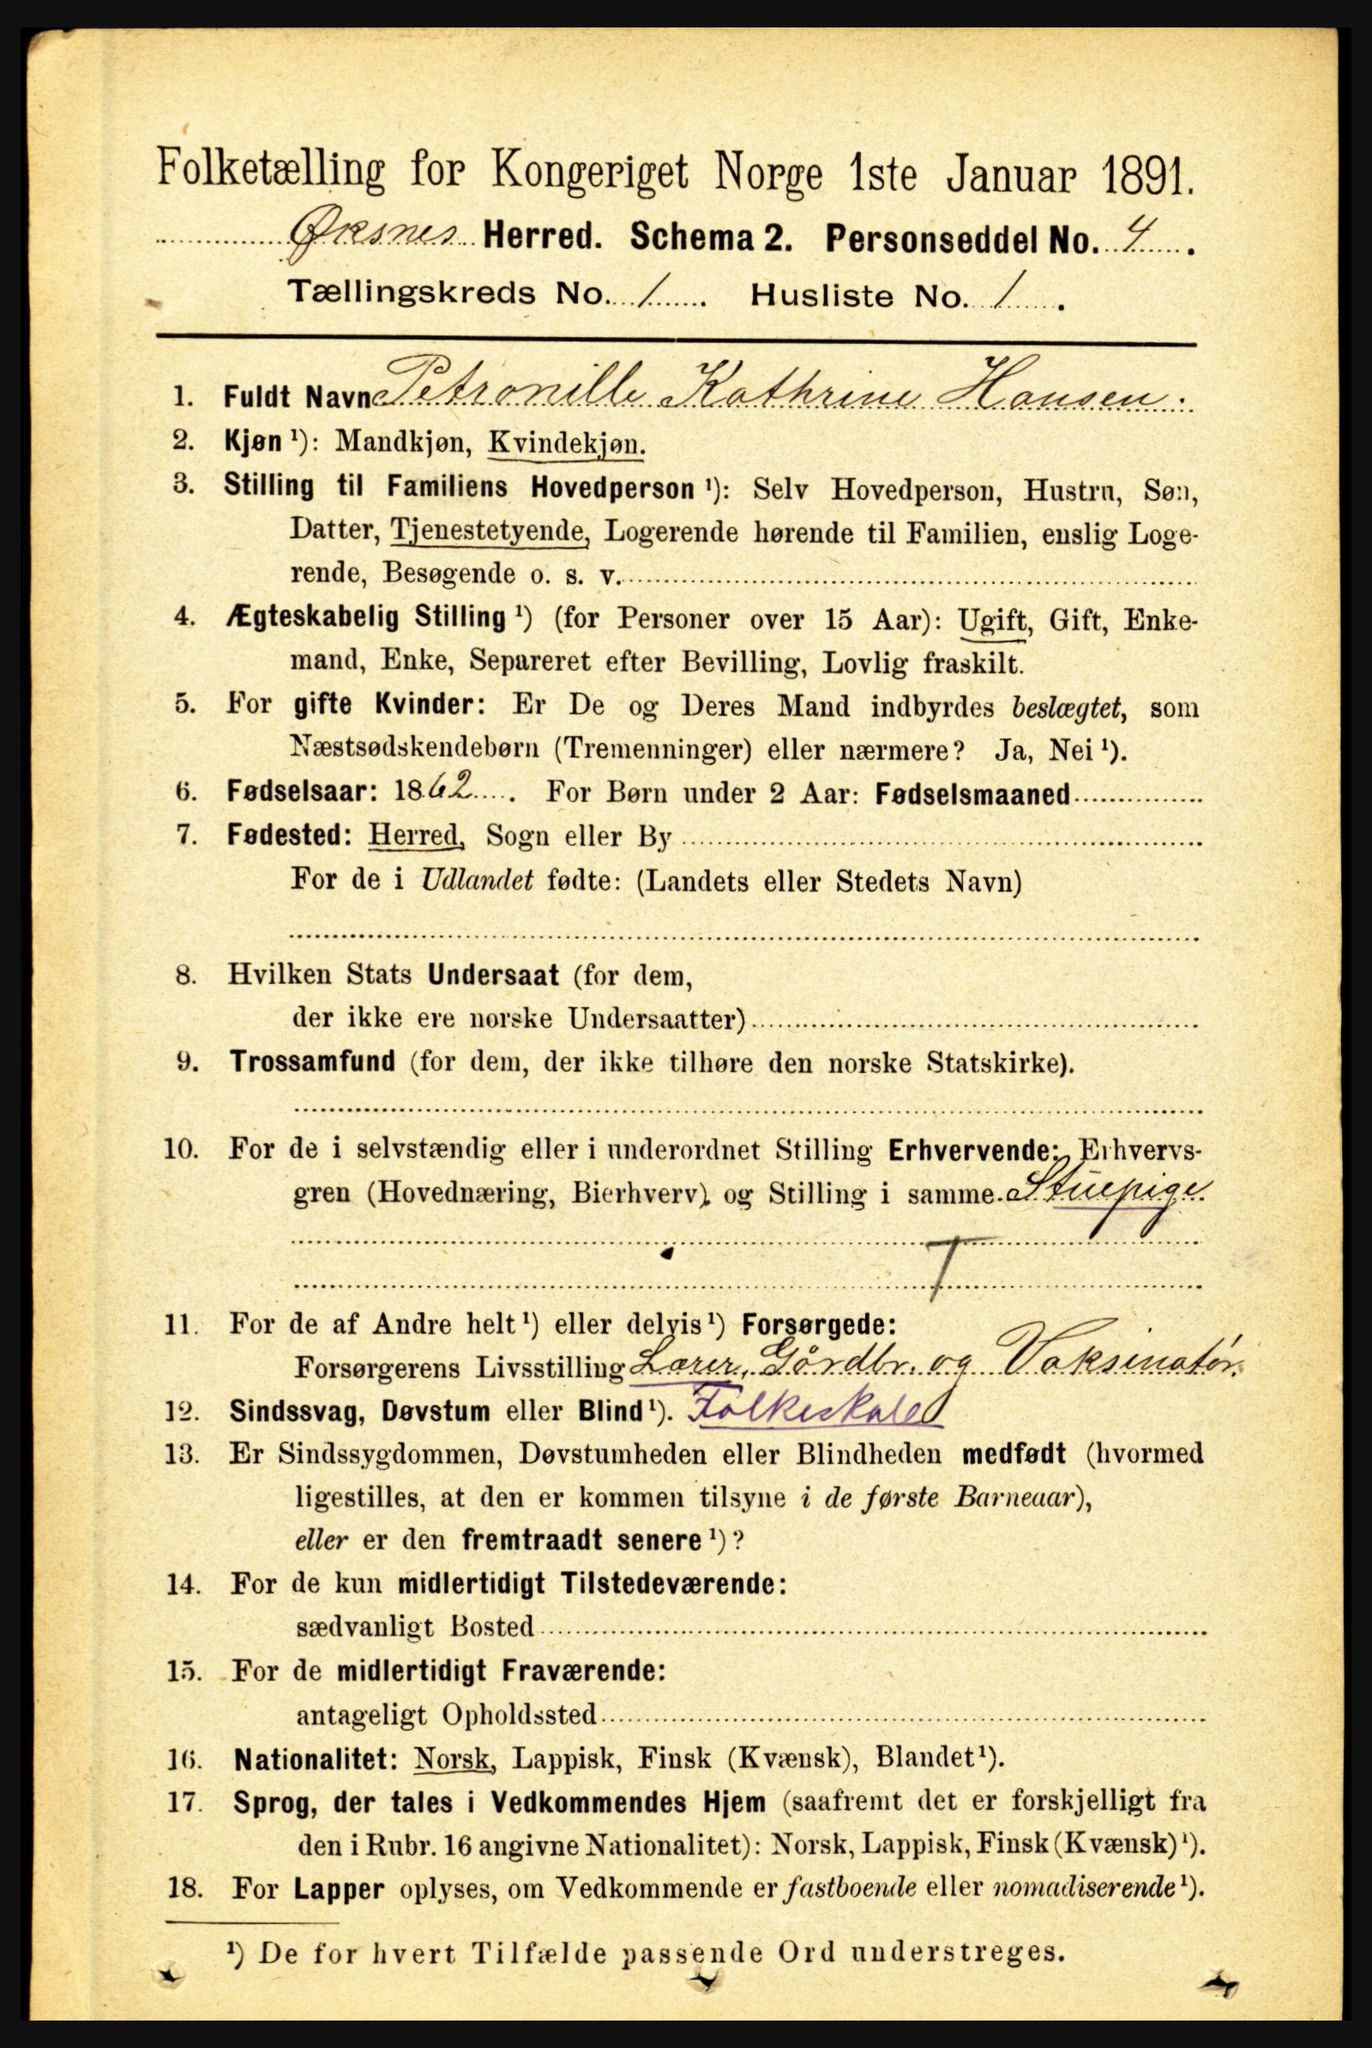 Folketælling for Kongeriget Norge 1ste Januar 1891.
Øksnes Herred. Schema 2. Personseddel No. 4.
Tællingskreds No. 1. Husliste No. 1.
1. Fuldt Navn Petronille Kathrine Hansen.
2. Kjøn ¹): Mandkjøn, Kvindekjøn.
3. Stilling til Familiens Hovedperson ¹): Selv Hovedperson, Hustru, Søn,
Datter, Tjenestetyende, Logerende hørende til Familien, enslig Loge-
rende, Besøgende o. s. v.
4. Ægteskabelig Stilling ¹) (for Personer over 15 Aar): Ugift, Gift, Enke-
mand, Enke, Separeret efter Bevilling, Lovlig fraskilt.
5. For gifte Kvinder: Er De og Deres Mand indbyrdes beslægtet, som
Næstsødskendebørn (Tremenninger) eller nærmere? Ja, Nei ¹).
6. Fødselsaar: 1862. For Børn under 2 Aar: Fødselsmaaned
7. Fødested: Herred, Sogn eller By
For de i Udlandet fødte: (Landets eller Stedets Navn)
8. Hvilken Stats Undersaat (for dem,
der ikke ere norske Undersaatter)
9. Trossamfund (for dem, der ikke tilhøre den norske Statskirke).
10. For de i selvstændig eller i underordnet Stilling Erhvervende: Erhvervs-
gren (Hovednæring, Bierhverv) og Stilling i samme. Stuepige.
T
11. For de af Andre helt ¹) eller delvis ¹) Forsørgede:
Forsørgerens Livsstilling Lærer, Gårdbr. og Vaksinatør.
12. Sindssvag, Døvstum eller Blind ¹). Folkeskole
13. Er Sindssygdommen, Døvstumheden eller Blindheden medfødt (hvormed
ligestilles, at den er kommen tilsyne i de første Barneaar),
eller er den fremtraadt senere ¹)?
14. For de kun midlertidigt Tilstedeværende:
sædvanligt Bosted
15. For de midlertidigt Fraværende:
antageligt Opholdssted
16. Nationalitet: Norsk, Lappisk, Finsk (Kvænsk), Blandet ¹).
17. Sprog, der tales i Vedkommendes Hjem (saafremt det er forskjelligt fra
den i Rubr. 16 angivne Nationalitet): Norsk, Lappisk, Finsk (Kvænsk) ¹).
18. For Lapper oplyses, om Vedkommende er fastboende eller nomadiserende ¹).
¹) De for hvert Tilfælde passende Ord understreges.